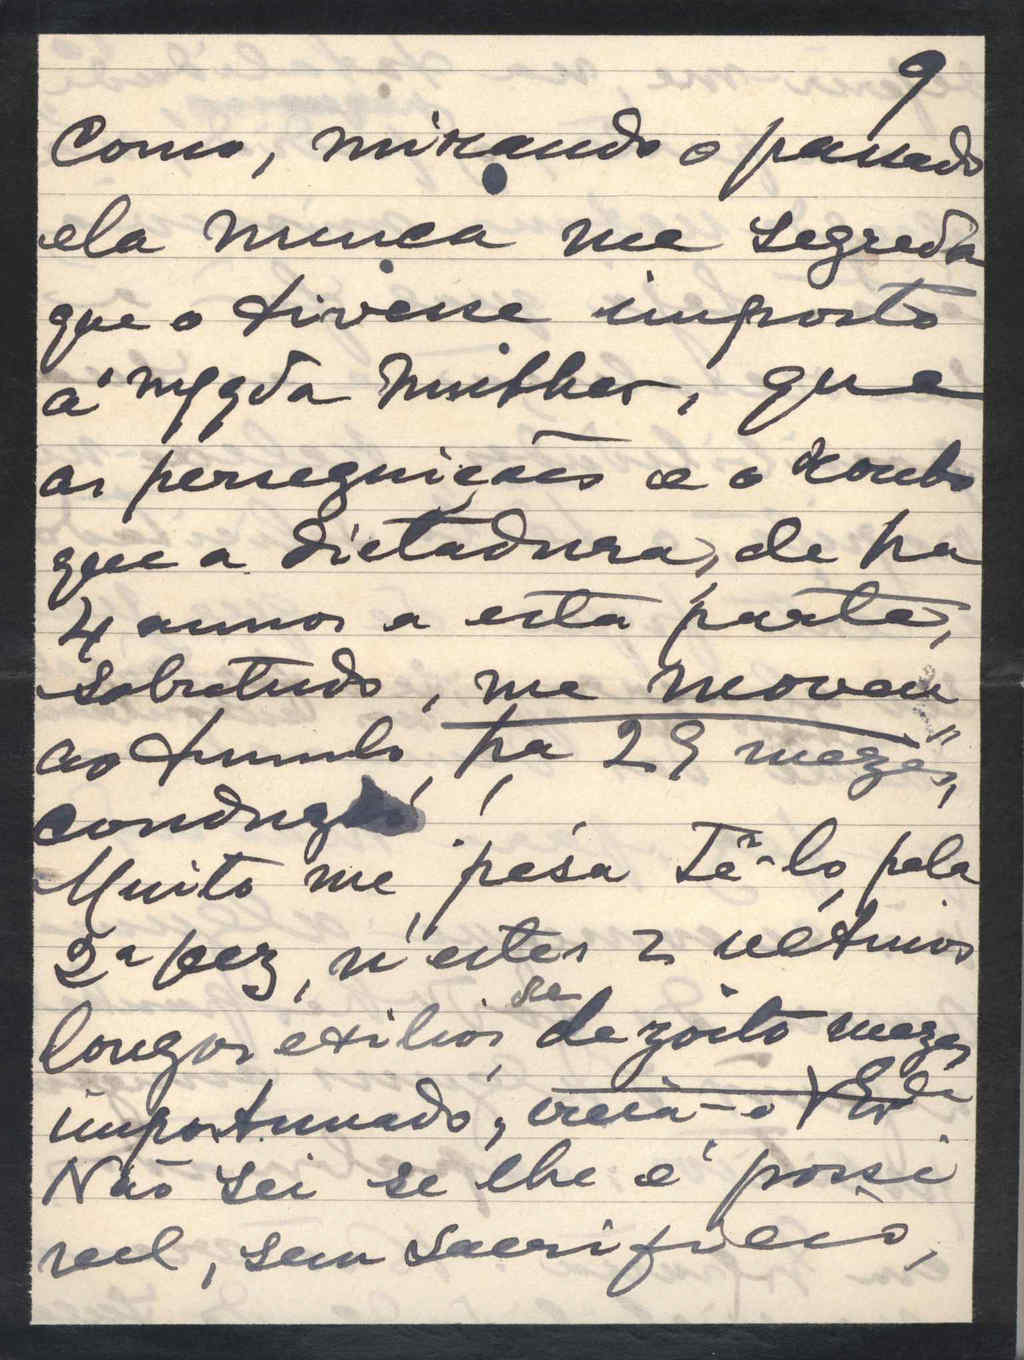 9
Como, mirando o passado
ela nunca me segreda
que o tivesse imposto
á mulher, que
as perseguições e o roubo
que a dictadura, de ha
4 annos a esta parte,
sobretudo, me moveu
ao tumulo, ha 29 mezes,
conduziu!
Muito me pésa tê-lo, pela
2ª vez, n'estes 2 ultimos
longos exilios, de dezoito mezes
importunado, creia-o
Não sei se lhe é possi
vel, sem sacrificio,